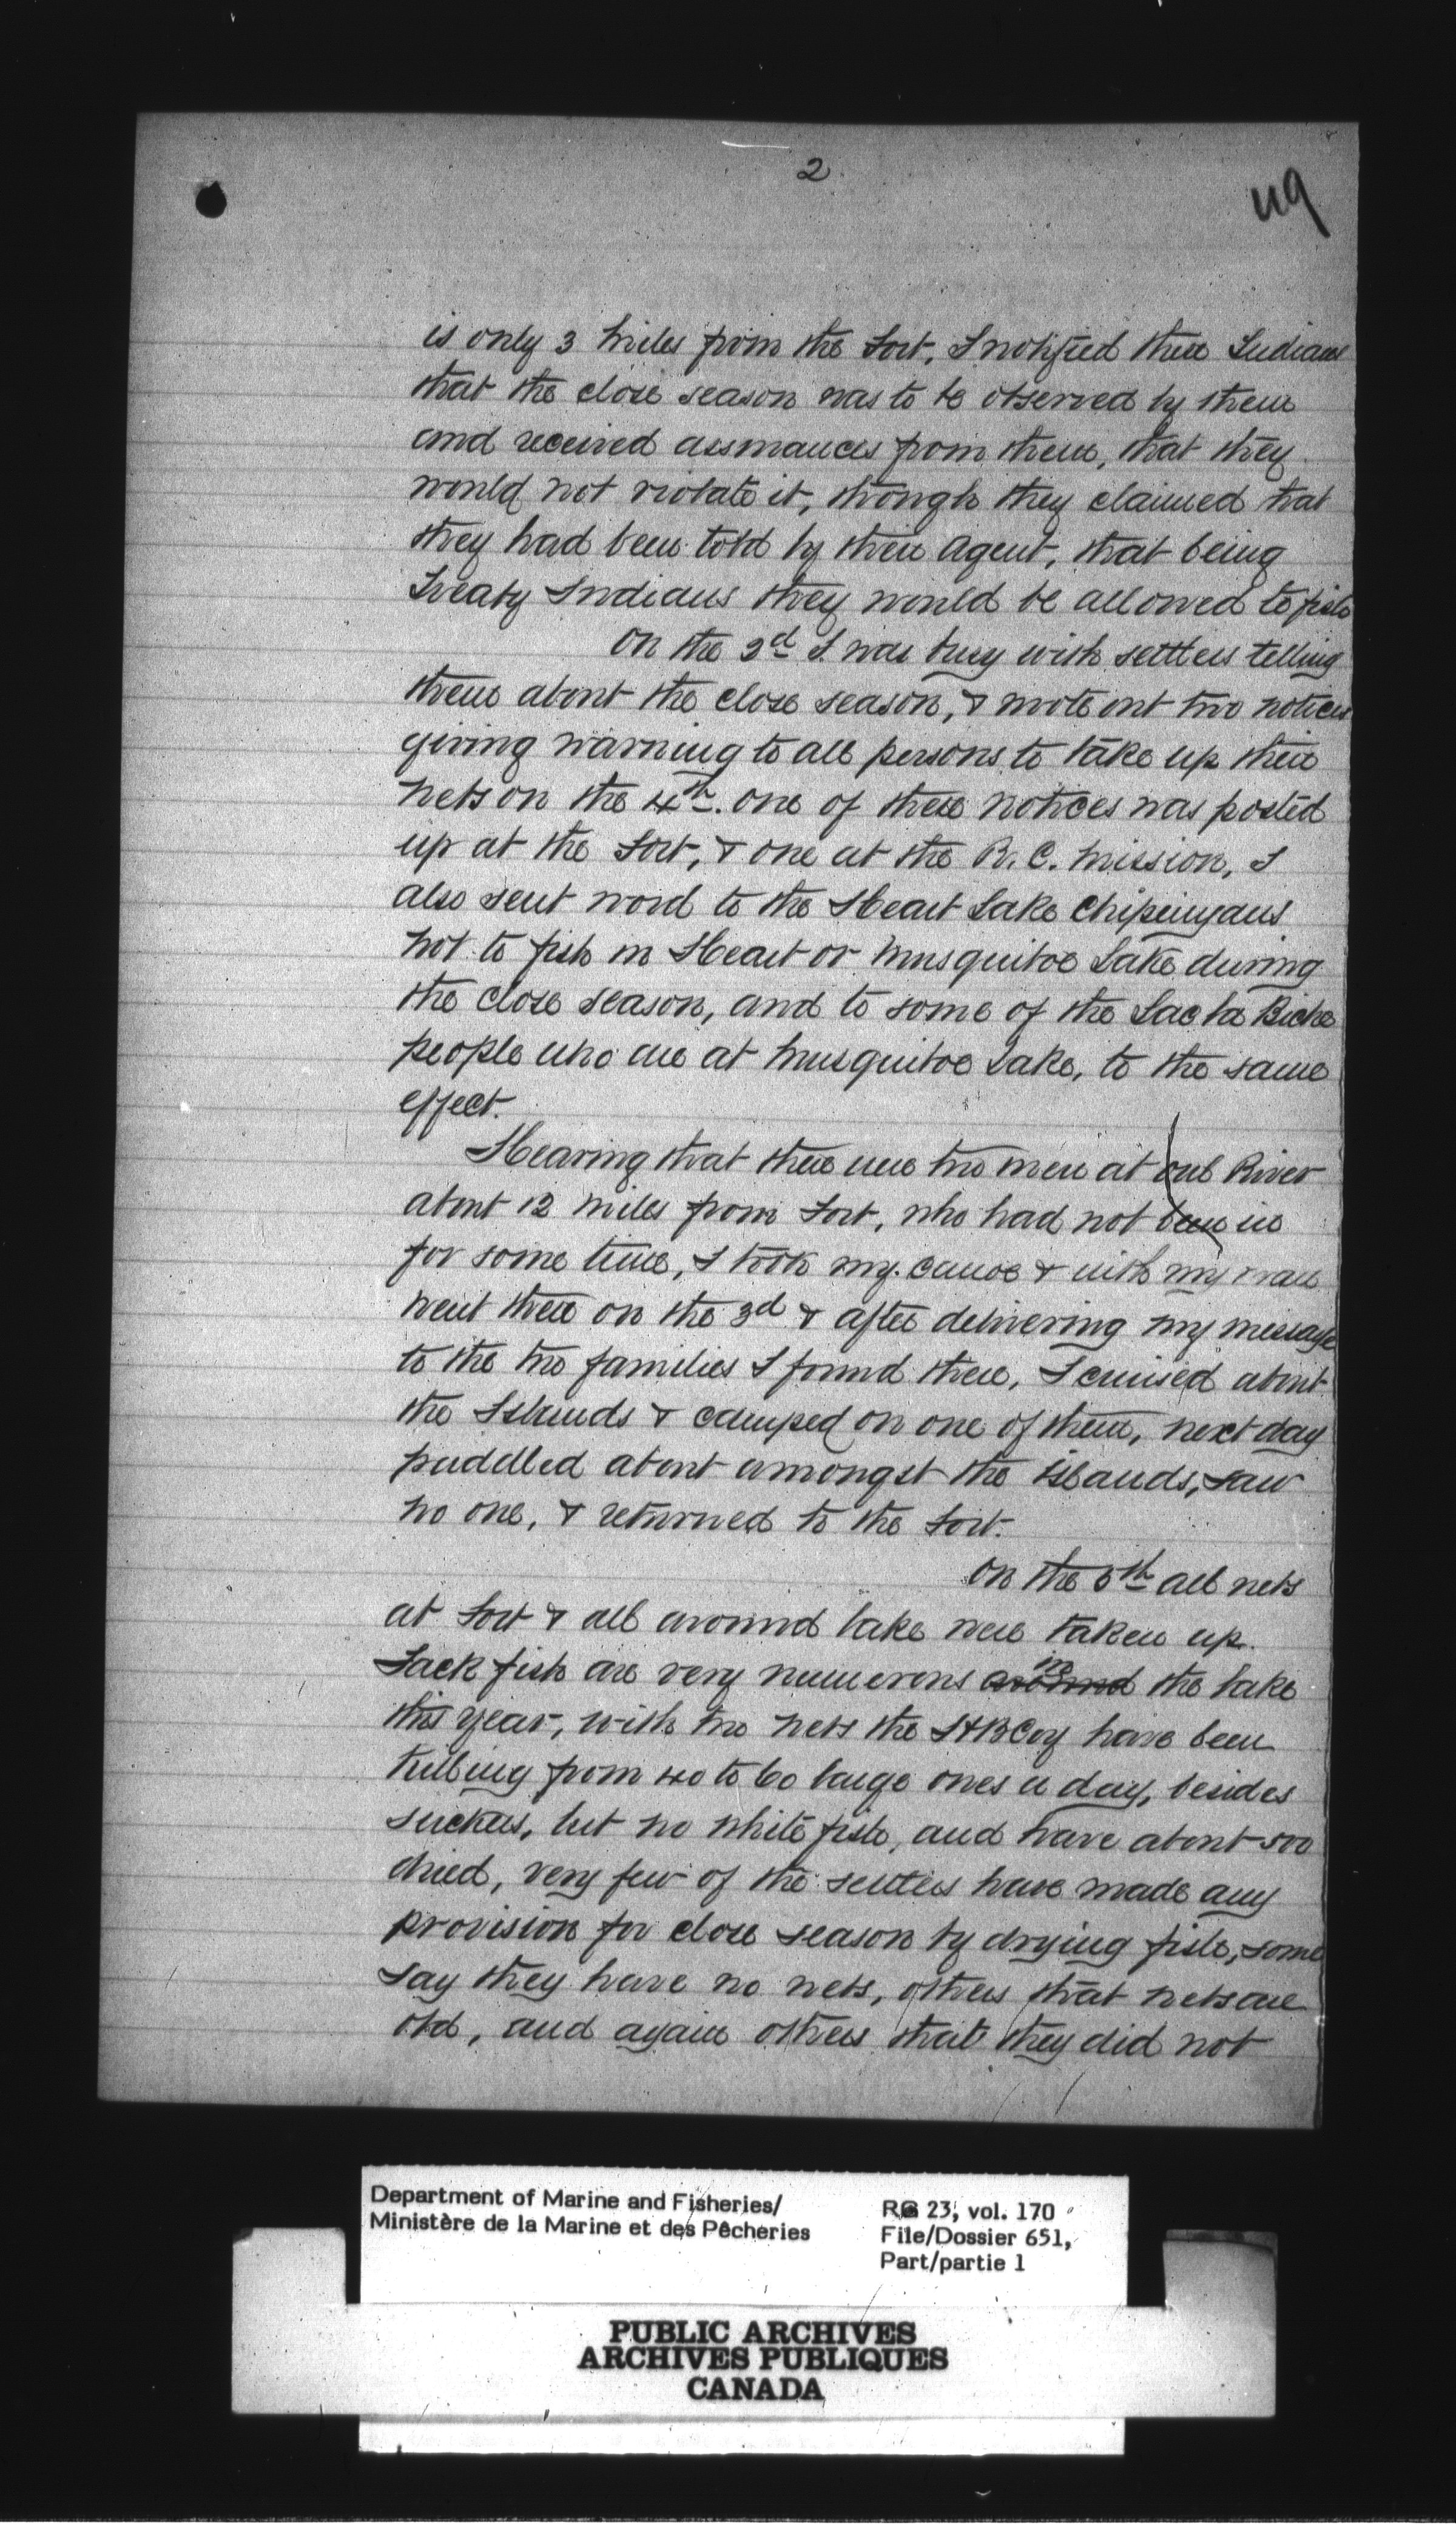 2
119
is only 3 miles from the Fort, I notified these Indians
that the close season was to be observed by them
and received assurances from them, that they
would not violate it, though they claimed that
they had been told by their Agent, that being
Treaty Indians they would be allowed to fish
On the 3d I was busy with settlers telling
them about the close season, & wrote out two notices
giving warning to all persons to take up their
nets on the 4th. one of these notices was posted
up at the Fort, & one at the R.C. Mission, I
also sent word to the Heart Lake Chipeuyans
not to fish in Heart or Musquitoe Lake during
the close season, and to some of the Lac la Biche
people who are at Musquitoe Lake, to the same
effect.
Hearing that there were two men at Owl River
about 12 miles from Fort, who had not been in
for some time, I took my canoe & with my man
went there on the 3d & after delivering my message
to the two families I found there, I cruised about
the Islands & camped on one of them, next day
paddled about amongst the islands, saw
no one, & returned to the Fort.
On the 5th all nets
at Fort & all around lake were taken up.
Jack fish are very numerous around in the lake
this year, with two nets the HBCoy have been
killing from 40 to 60 large ones a day, besides
suckers, but no white fish, and have about 500
dried, very few of the settlers have made any
provision for close season by drying fish, some
say they have no nets, others that nets are
old, and again others that they did not
Department of Marine and Fisheries/
Ministère de la Marine et des Pêcheries
RG 23, vol. 170
File/Dossier 651,
Part/partie 1
PUBLIC ARCHIVES
ARCHIVES PUBLIQUES
CANADA